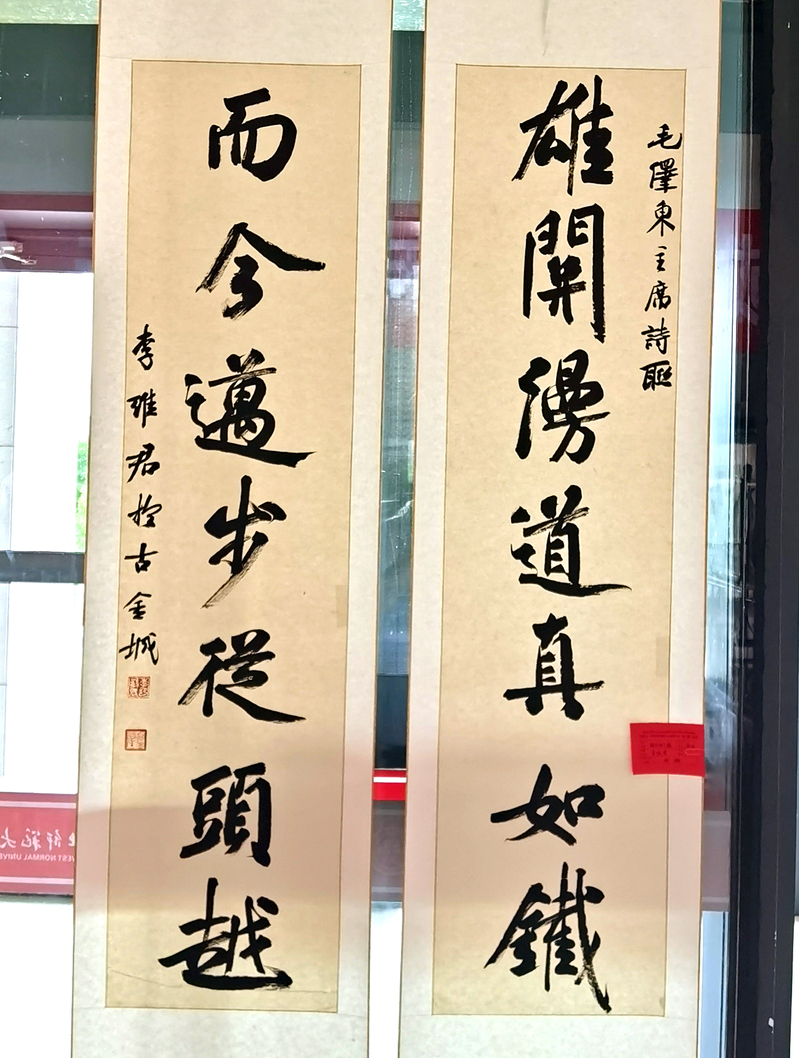 毛澤東主席詩聯
雄關漫道真如鐵
而今邁步從頭越
李君於古金城
師範大
WEST NORMAL UNIVE